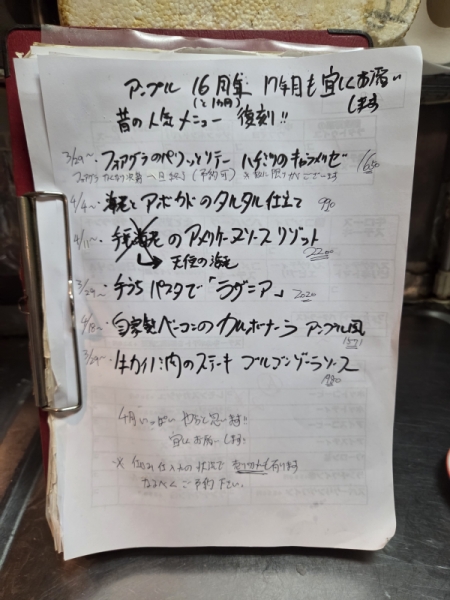 アップル 16周年 17年目も宜しくお願い
(と1ヶ月) します
昔の人気メニュー 復刻!!
3/29~・フォアグラのペリッとソテー ハチミツのキャラメリゼ 1650
フォアグラ なくなり次第 (予約可) ございます
4/4~・海老とアボカドのタルタル仕立て 990
4/11~・海老のアメリケーヌソース リゾット
→天使の海老 2200
3/29~・手打ちパスタで「ラザニア」 2020
4/18~・自家製ベーコンのカルボナーラ アップル風
3/29~・牛カイノミ肉のステーキ ゴルゴンゾーラソース
1980
4月いっぱい やろうと思います!!
宜しくお願いします!
※ 仕込み 仕入れの状況で 売り切れも有ります
なるべくご予約下さい。